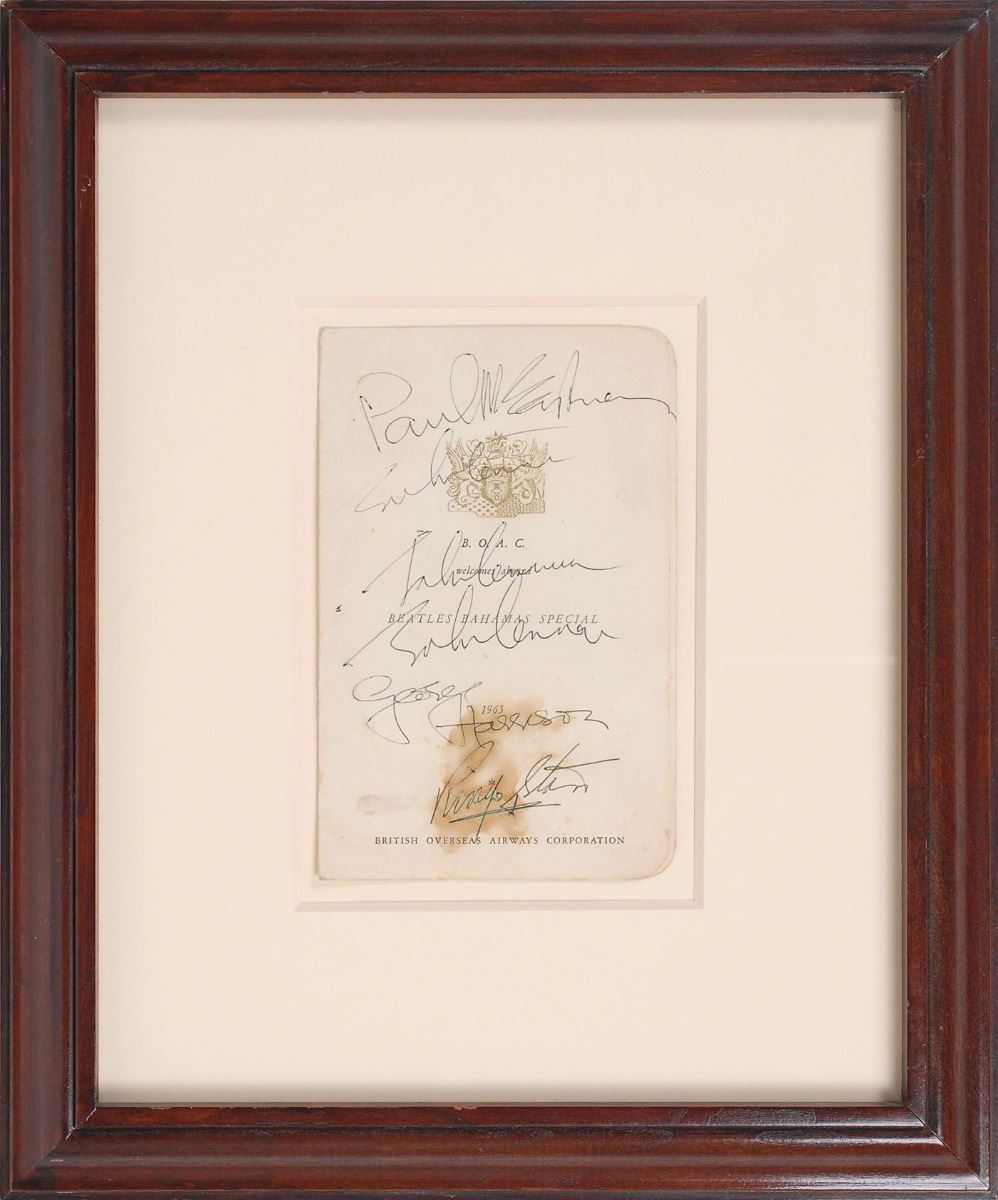 Paul McCartney
John Lennon
B. O. A. C.
welcomes aboard
John Lennon
BEATLES BAHAMAS SPECIAL
John Lennon
George
1965
Harrison
Ringo Starr
BRITISH OVERSEAS AIRWAYS CORPORATION